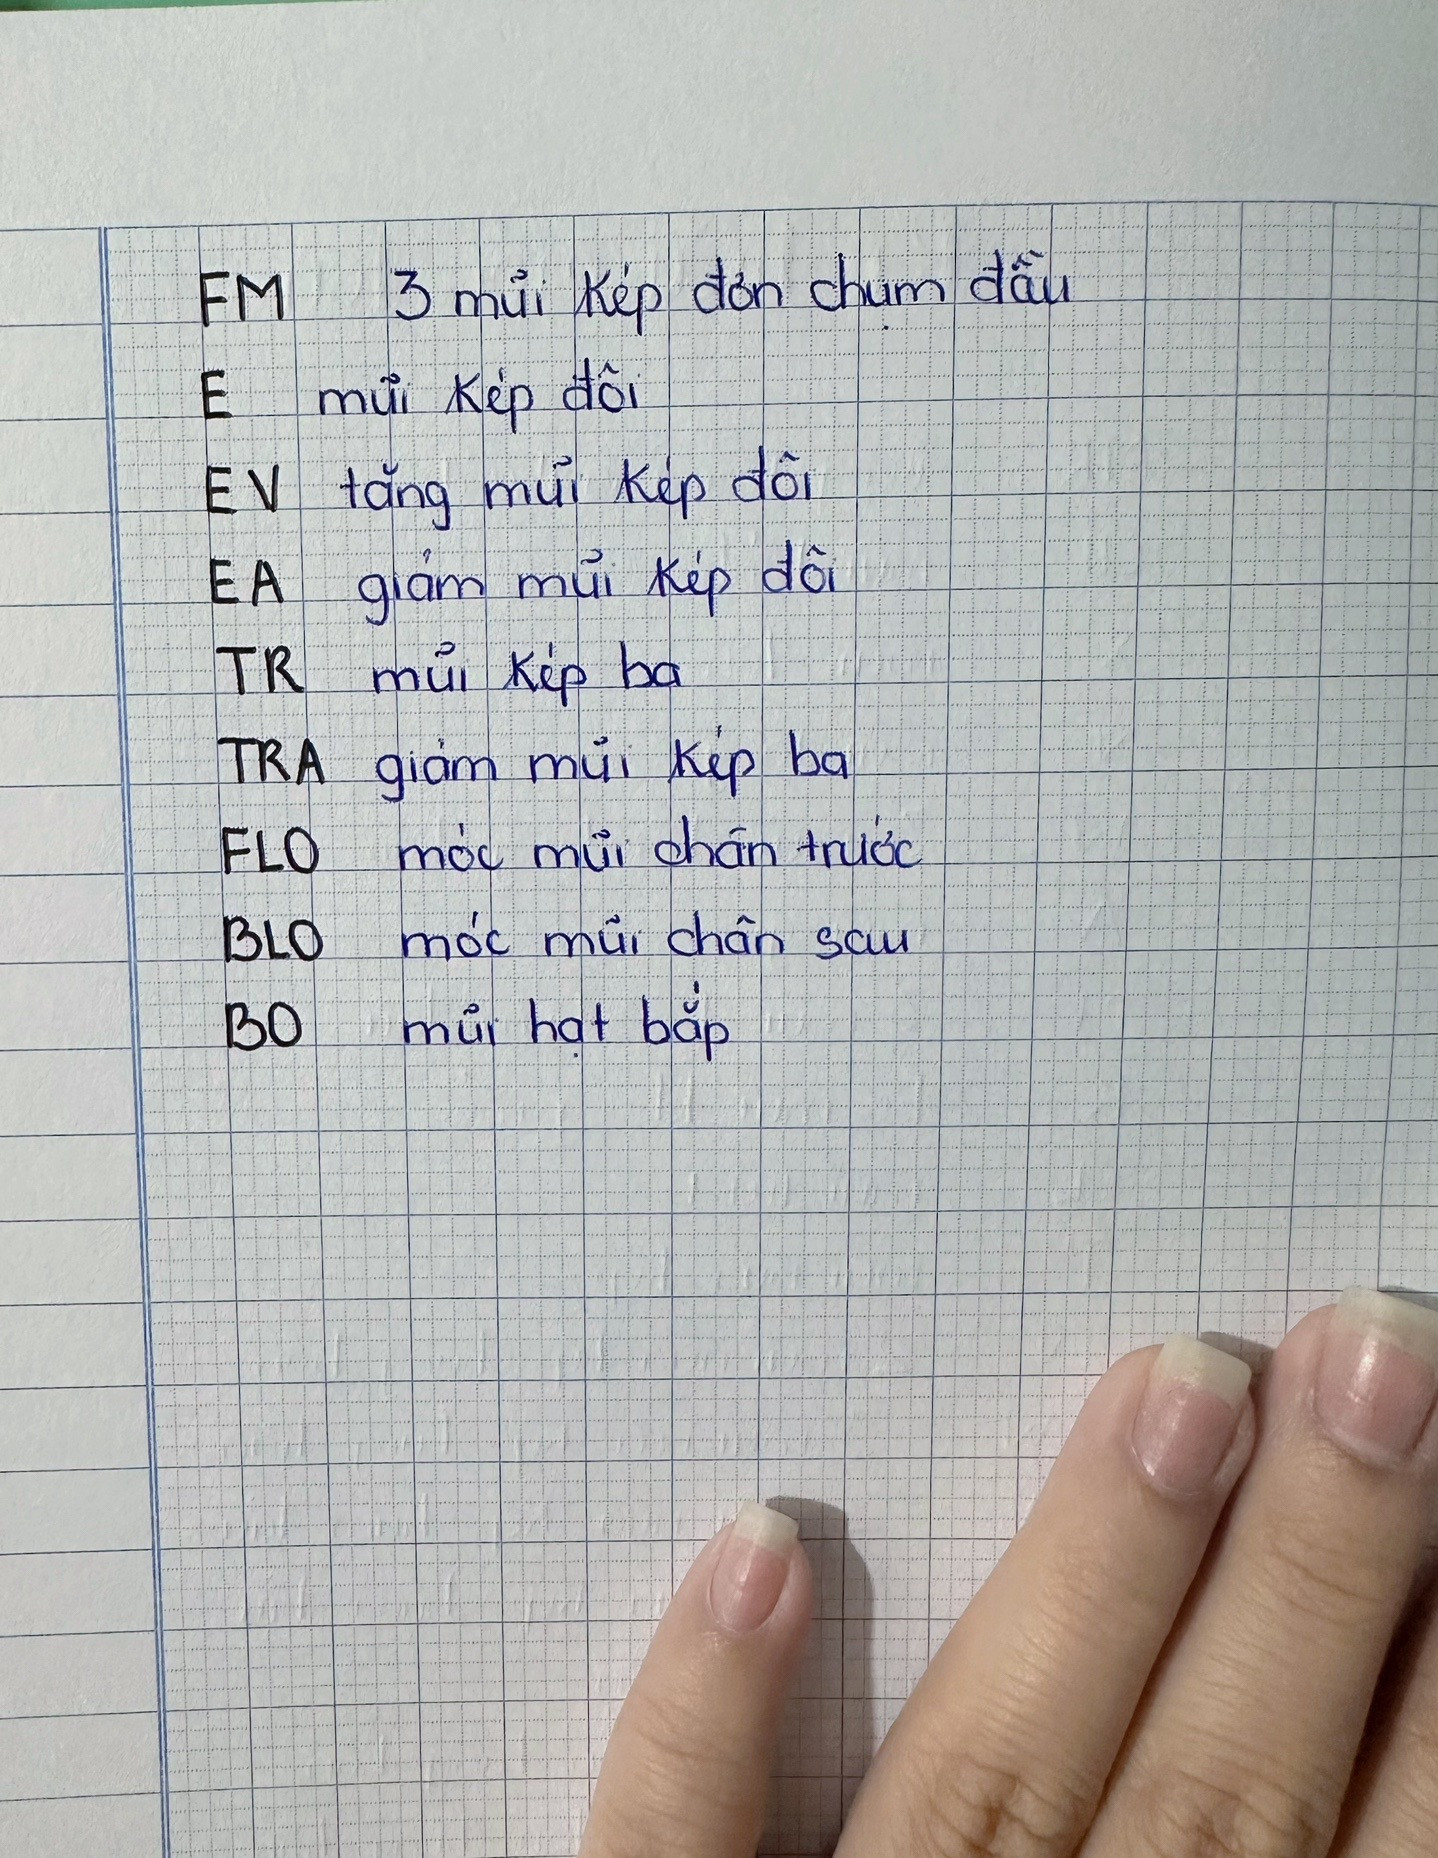 FM 3 mũi kép đơn chụm đầu
E mũi kép đôi
EV tăng mũi kép đôi
EA giảm mũi kép đôi
TR mũi kép ba
TRA giảm mũi kép ba
FLO móc mũi chân trước
BLO móc mũi chân sau
BO mũi hạt bắp